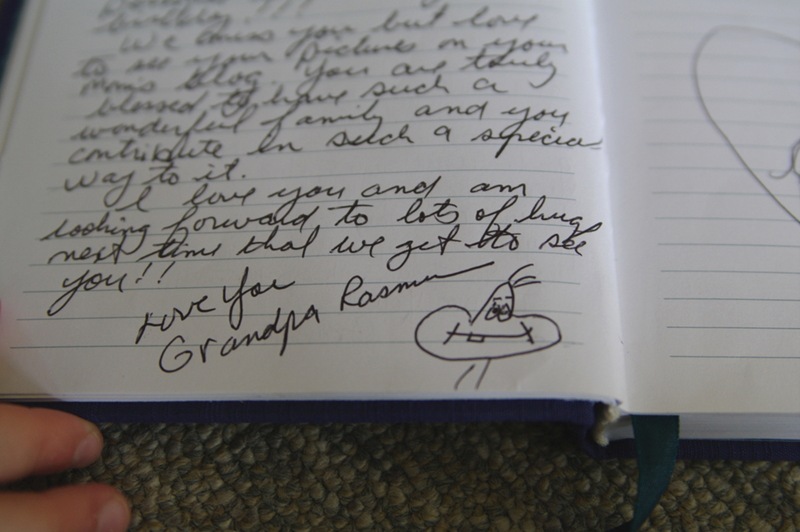 birthday!!!
We miss you but love
to see your pictures on your
mom's blog. You are truly
blessed to have such a
wonderful family and you
contribute in such a specia
way to it.
I love you and am
looking forward to lots of hug
next time that we get to see
you!!
Love You
Grandpa Rasmu